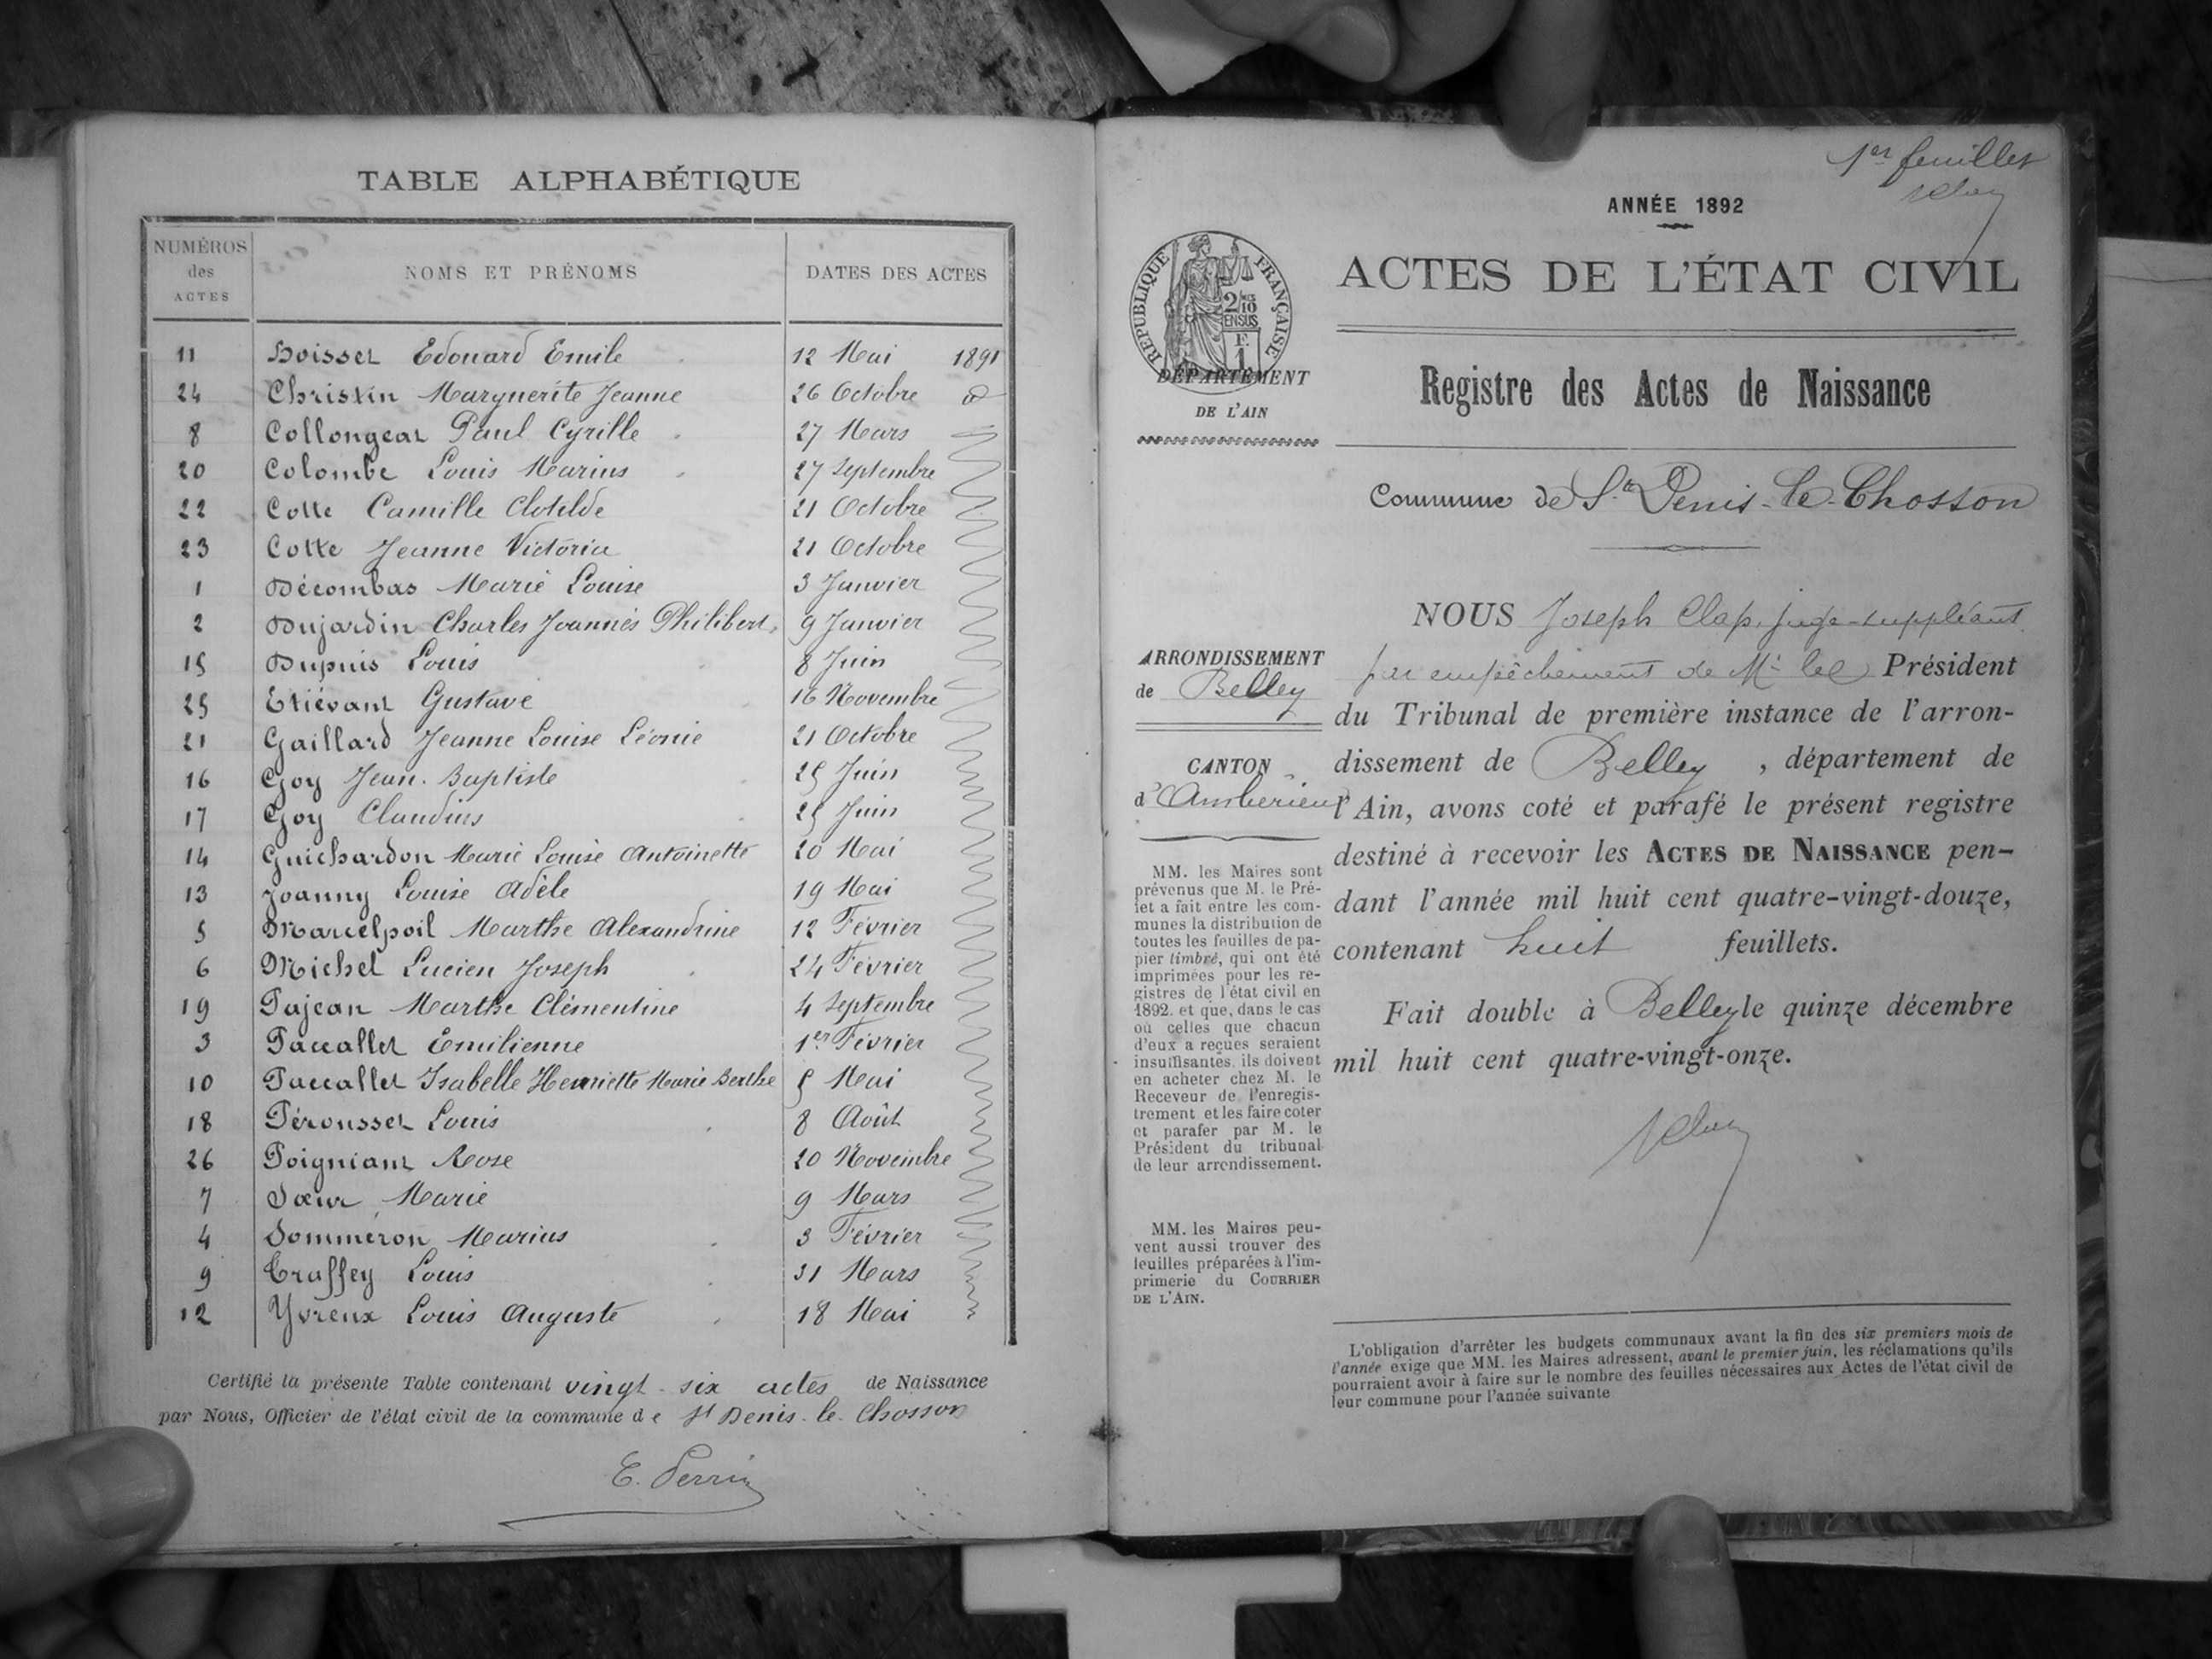 TABLE ALPHABÉTIQUE
NUMÉROS des ACTES NOMS ET PRÉNOMS DATES DES ACTES
11 Boisset Edouard Emile 12 Mai 1891
24 Christin Marguerite Jeanne 26 Octobre d°
8 Collongeat Paul Cyrille 27 Mars
20 Colombe Louis Marius 27 Septembre
22 Cotte Camille Clotilde 21 Octobre
23 Cotte Jeanne Victoria 21 Octobre
1 Décombas Marie Louise 3 Janvier
2 Dujardin Charles Joannès Philibert 9 Janvier
15 Dupuis Louis 8 Juin
25 Etiévant Gustave 16 Novembre
21 Gaillard Jeanne Louise Léonie 21 Octobre
16 Goy Jean-Baptiste 25 Juin
17 Goy Claudius 25 Juin
14 Guichardon Marie Louise Antoinette 20 Mai
13 Joanny Louise Adèle 19 Mai
5 Marcelpoil Marthe Alexandrine 12 Février
6 Michel Lucien Joseph 24 Février
19 Pajean Marthe Clémentine 4 Septembre
3 Paccallet Emilienne 1er Février
10 Paccallet Isabelle Henriette Marie Berthe 5 Mai
18 Pérousset Louis 8 Août
26 Poigniant Rose 20 Novembre
7 Sœur Marie 9 Mars
4 Sommeron Marius 3 Février
9 Traffey Louis 31 Mars
12 Yvreux Louis Auguste 18 Mai
Certifié la présente Table contenant vingt-six actes de Naissance
par Nous, Officier de l'état civil de la commune de St Denis-le-Chosson
E. Perrin
1er feuillet
ANNÉE 1892
RÉPUBLIQUE FRANÇAISE
2/10
EN SUS
F.
1
ACTES DE L'ÉTAT CIVIL
DÉPARTEMENT
DE L'AIN
Registre des Actes de Naissance
Commune de St Denis-le-Chosson
ARRONDISSEMENT
de Belley
CANTON
d'Ambérieu
NOUS Joseph Clap, juge-suppléant
par empêchement de Mr le Président
du Tribunal de première instance de l'arron-
dissement de Belley, département de
l'Ain, avons coté et parafé le présent registre
destiné à recevoir les ACTES DE NAISSANCE pen-
dant l'année mil huit cent quatre-vingt-douze,
contenant huit feuillets.
Fait double à Belley le quinze décembre
mil huit cent quatre-vingt-onze.
MM. les Maires sont
prévenus que M. le Pré-
fet a fait entre les com-
munes la distribution de
toutes les feuilles de pa-
pier timbré, qui ont été
imprimées pour les re-
gistres de l'état civil en
1892, et que, dans le cas
où celles que chacun
d'eux a reçues seraient
insuffisantes, ils doivent
en acheter chez M. le
Receveur de l'enregis-
trement et les faire coter
et parafer par M. le
Président du tribunal
de leur arrondissement.
MM. les Maires peu-
vent aussi trouver des
feuilles préparées à l'im-
primerie du COURRIER
DE L'AIN.
L'obligation d'arrêter les budgets communaux avant la fin des six premiers mois de
l'année exige que MM. les Maires adressent, avant le premier juin, les réclamations qu'ils
pourraient avoir à faire sur le nombre des feuilles nécessaires aux Actes de l'état civil de
leur commune pour l'année suivante